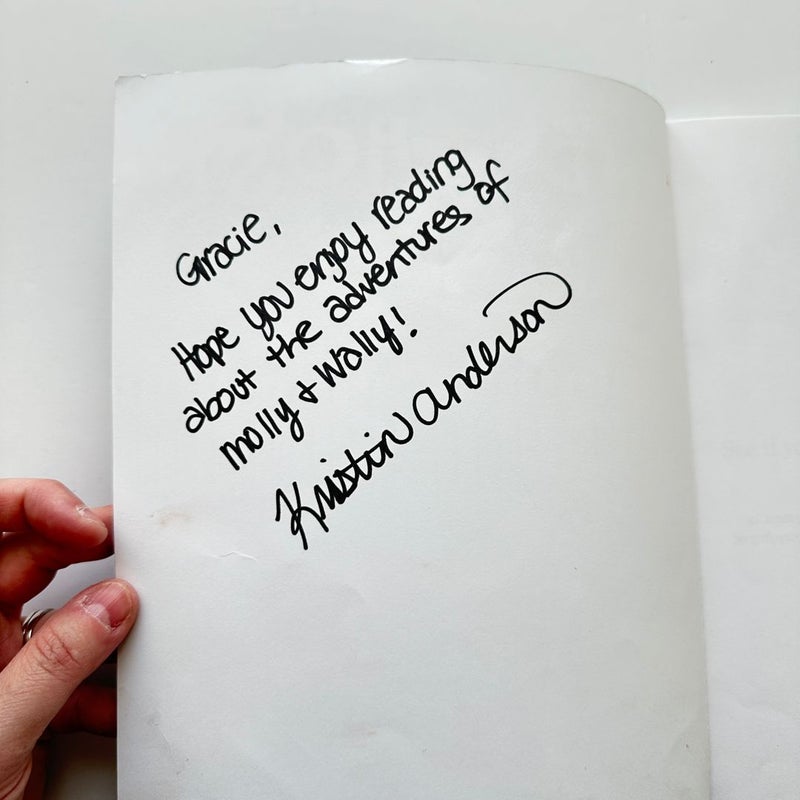 Gracie,
Hope you enjoy reading
about the adventures of
Molly & Wally!
Kristin Anderson